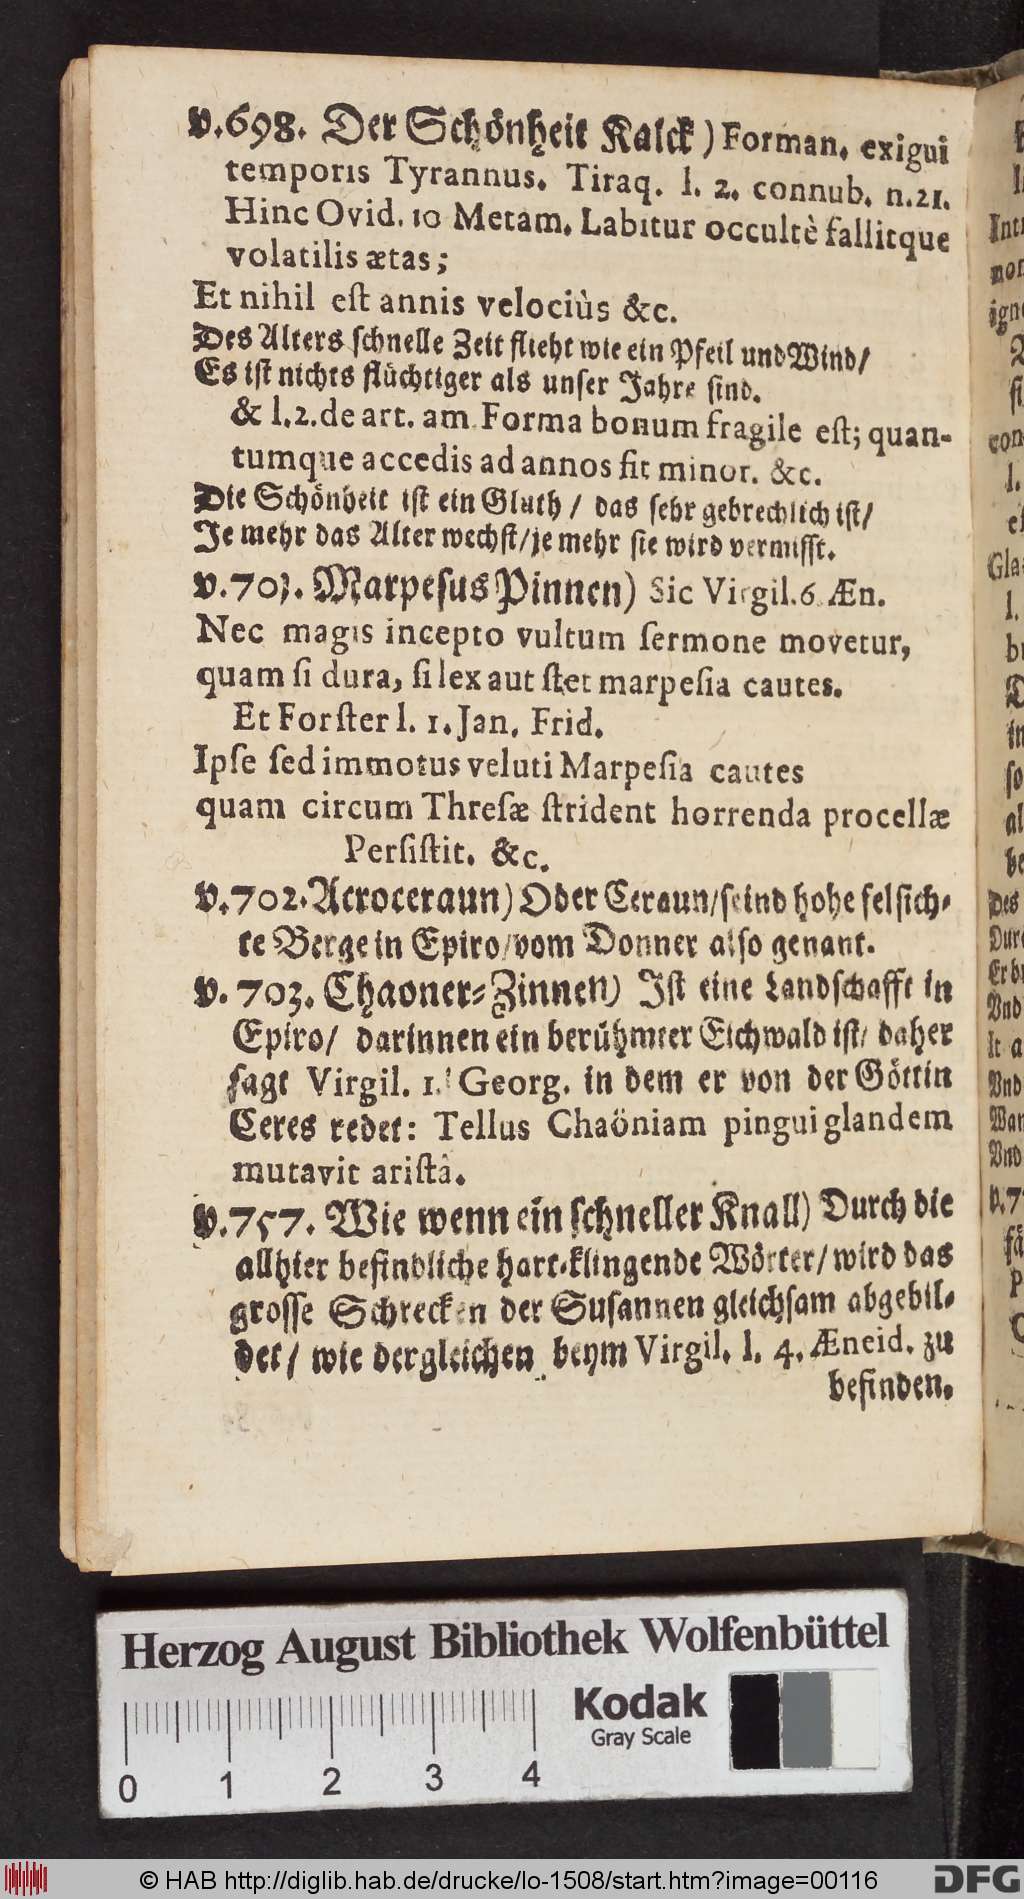 v.698. Der Schönheit Kalck) Forman. exigui
temporis Tyrannus. Tiraq. l. 2. connub. n.21.
Hinc Ovid. 10 Metam. Labitur occultè fallitque
volatilis ætas;
Et nihil est annis velociùs &c.
Des Alters schnelle Zeit flieht wie ein Pfeil und Wind/
Es ist nichts flüchtiger als unser Jahre sind.
& l.2. de art. am. Forma bonum fragile est; quan-
tumque accedis ad annos fit minor. &c.
Die Schönheit ist ein Gluth / das sehr gebrechlich ist/
Je mehr das Alter wechst/je mehr sie wird vermisst.
v.701. Marpesus Pinnen) Sic Virgil.6. Æn.
Nec magis incepto vultum sermone movetur,
quam si dura, silex aut stet marpesia cautes.
Et Forster l. 1. Jan. Frid.
Ipse sed immotus veluti Marpesia cautes
quam circum Thresæ strident horrenda procellæ
Persistit. &c.
v.702. Acroceraun) Oder Ceraun/seind hohe felsich-
te Berge in Epiro/vom Donner also genant.
v. 703. Chaoner-Zinnen) Ist eine Landschafft in
Epiro/ darinnen ein berühmter Eichwald ist/ daher
sagt Virgil. 1. Georg. in dem er von der Göttin
Ceres redet: Tellus Chaöniam pingui glandem
mutavit aristâ.
v.757. Wie wenn ein schneller Knall) Durch die
allhier befindliche hart-klingende Wörter/ wird das
grosse Schrecken der Susannen gleichsam abgebil-
det/ wie dergleichen beym Virgil. l. 4. Æneid. zu
befinden.
Herzog August Bibliothek Wolfenbüttel
Kodak
Gray Scale
0 1 2 3 4
© HAB http://diglib.hab.de/drucke/lo-1508/start.htm?image=00116
DFG